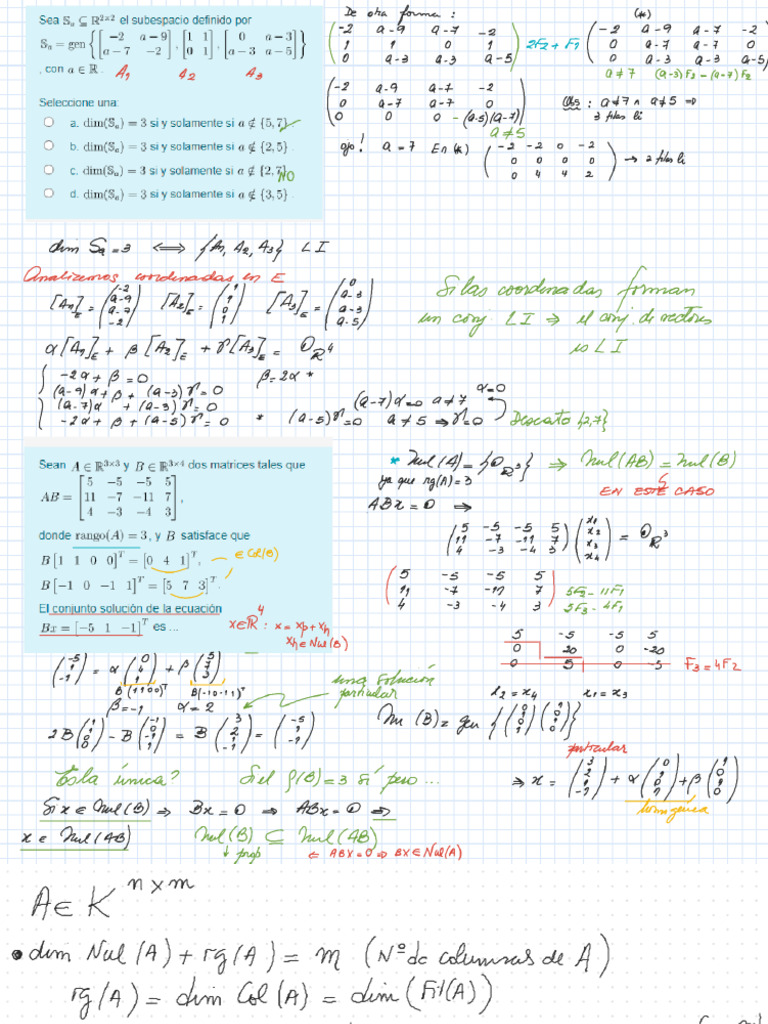 Sea 𝕊ₐ ⊆ ℝ²ˣ² el subespacio definido por
𝕊ₐ = gen { [−2 a−9; a−7 −2], [1 1; 0 1], [0 a−3; a−3 a−5] }
, con a ∈ ℝ. A₁ A₂ A₃
Seleccione una:
a. dim(𝕊ₐ) = 3 si y solamente si a ∉ {5,7} ✓
b. dim(𝕊ₐ) = 3 si y solamente si a ∉ {2,5}.
c. dim(𝕊ₐ) = 3 si y solamente si a ∉ {2,7} NO
d. dim(𝕊ₐ) = 3 si y solamente si a ∉ {3,5}.
De otra forma: (*)
(−2 a−9 a−7 −2; 1 1 0 1; 0 a−3 a−3 a−5) 2F₂+F₁ (−2 a−9 a−7 −2; 0 a−7 a−7 0; 0 a−3 a−3 a−5)
a≠7 (a−3)F₂−(a−7)F₂
(−2 a−9 a−7 −2; 0 a−7 a−7 0; 0 0 0 −(a−5)(a−7))
a≠5
Obs: a≠7 ∧ a≠5 ⇒
3 filas li
ojo! a=7 En (*) (−2 −2 0 −2; 0 0 0 0; 0 4 4 2) → 2 filas li
dim Sa=3 ⟺ {A₁, A₂, A₃} LI
Analizamos coordenadas en E
[A₁]E = (−2; a−9; a−7; −2) [A₂]E = (1; 1; 0; 1) [A₃]E = (0; a−3; a−3; a−5)
Si las coordenadas forman
un conj. LI ⇒ el conj. de vectores
es LI
α[A₁]E + β[A₂]E + γ[A₃]E = Oℝ⁴
−2α+β=0 β=2α *
(a−9)α+β+(a−3)γ=0
(a−7)α+(a−3)γ=0
−2α+β+(a−5)γ=0 * (a−5)γ=0 a≠5 ⇒ γ=0
(a−7)α=0 a≠7 α=0
Descarto {2,7}
Sean A ∈ ℝ³ˣ³ y B ∈ ℝ³ˣ⁴ dos matrices tales que
AB = [5 −5 −5 5; 11 −7 −11 7; 4 −3 −4 3],
donde rango(A) = 3, y B satisface que
B[1 1 0 0]ᵀ = [0 4 1]ᵀ, ∈ Col(B)
B[−1 0 −1 1]ᵀ = [5 7 3]ᵀ.
El conjunto solución de la ecuación
Bx = [−5 1 −1]ᵀ es ...
x∈ℝ⁴: x = xp+xh
xh∈Nul(B)
* Nul(A) = {Oℝ³} ⇒ Nul(AB) = Nul(B)
ya que rg(A)=3
EN ESTE CASO
ABx = 0 ⇒
(5 −5 −5 5; 11 −7 −11 7; 4 −3 −4 3)(x₁; x₂; x₃; x₄) = Oℝ³
(5 −5 −5 5; 11 −7 −11 7; 4 −3 −4 3) 5F₂−11F₁
5F₃−4F₁
5 −5 −5 5
0 20 0 −20
0 5 0 −5 F₃=4F₂
x₂=x₄ x₁=x₃
Nul (B) = gen {(0; 1; 0; 1) (1; 0; 1; 0)}
(−5; 1; −1) = α(0; 4; 1) + β(5; 7; 3)
B(1100)ᵀ B(−10−11)ᵀ
β=−1 α=2
una solución
particular
2B(1; 1; 0; 0) − B(−1; 0; −1; 1) = B(3; 2; 1; −1) = (−5; 1; −1)
Es la única? Si el ρ(B)=3 sí pero...
particular
⇒ x = (3; 2; 1; −1) + α(0; 1; 0; 1) + β(1; 0; 1; 0)
homogénea
Si x ∈ Nul(B) ⇒ Bx=0 ⇒ ABx=0 ⇒
x ∈ Nul(AB) Nul(B) ⊆ Nul(AB)
↓ prop ⇐ ABX=0 ⇒ BX∈Nul(A)
A∈ K ⁿˣᵐ
• dim Nul (A) + rg (A) = m (Nº de columnas de A)
rg (A) = dim Col (A) = dim (Fil(A))